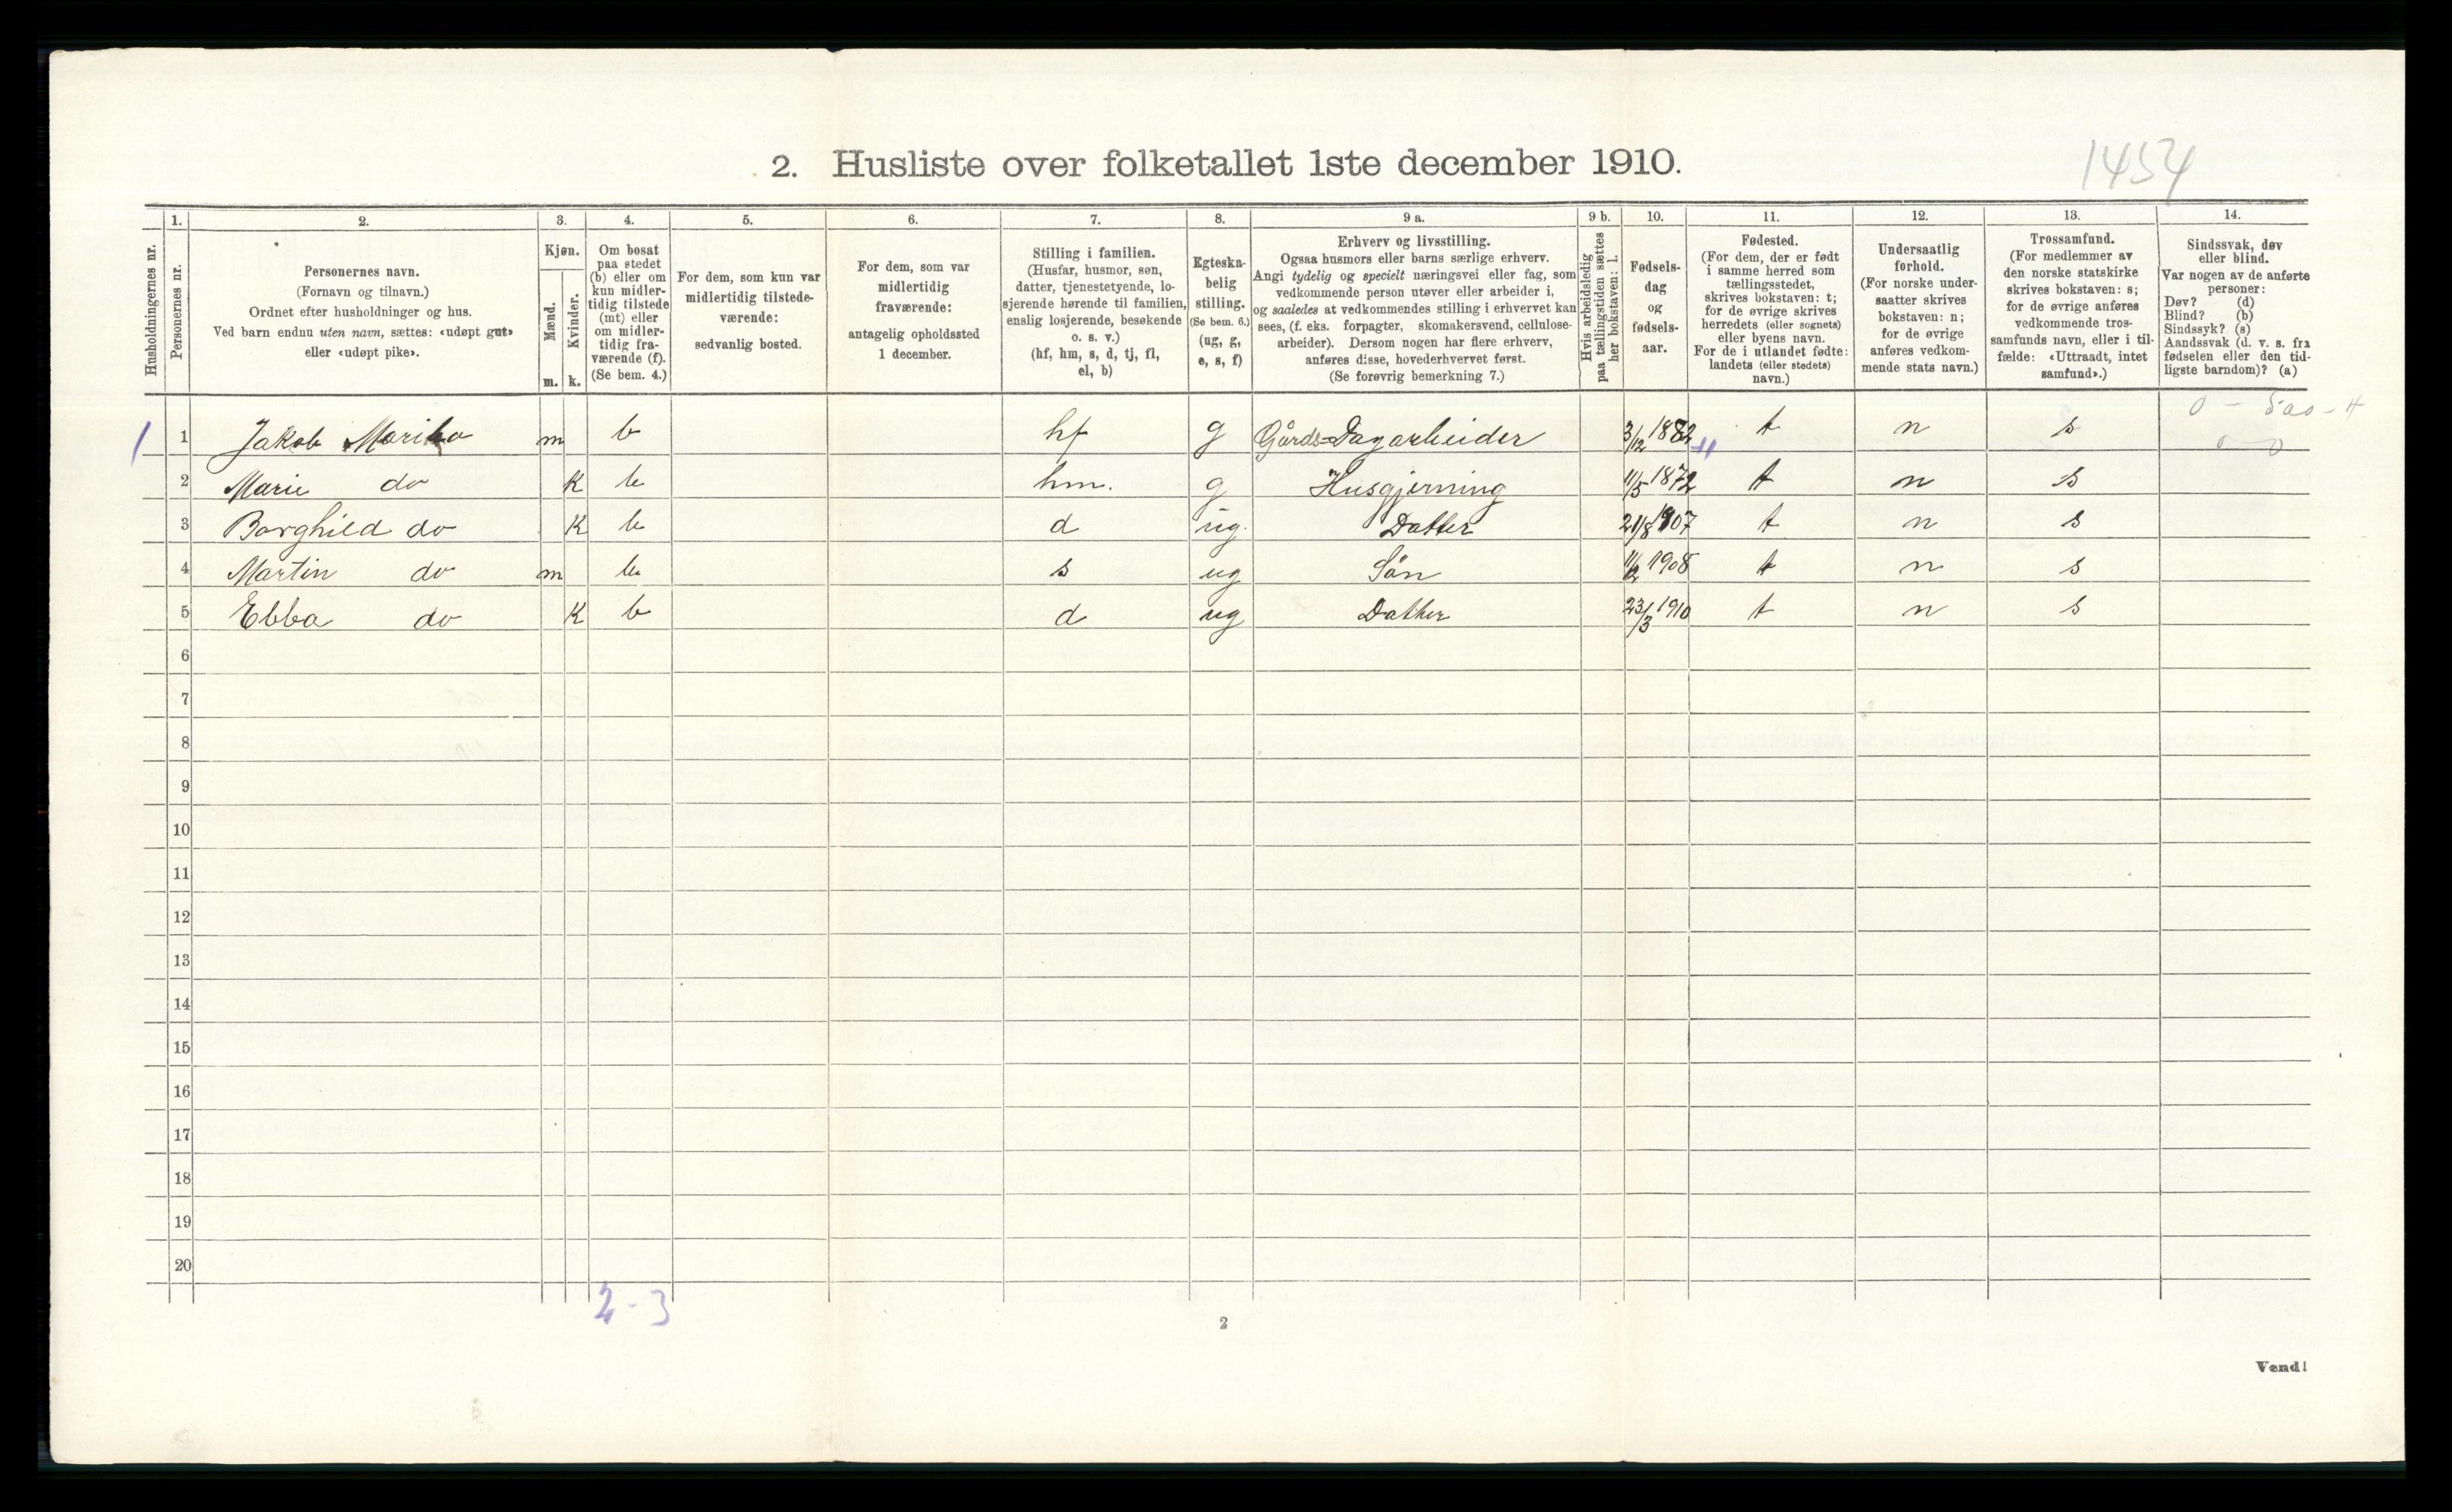 2. Husliste over folketallet 1ste december 1910.
1454
Husholdningernes nr.
1.
Personernes nr.
2.
Personernes navn.
(Fornavn og tilnavn.)
Ordnet efter husholdninger og hus.
Ved barn endnu uten navn, sættes: «udøpt gut»
eller «udøpt pike».
3.
Kjøn.
Mænd.
Kvinder.
m. k.
4.
Om bosat
paa stedet
(b) eller om
kun midler-
tidig tilstede
(mt) eller
om midler-
tidig fra-
værende (f).
(Se bem. 4.)
5.
For dem, som kun var
midlertidig tilstede-
værende:
sedvanlig bosted.
6.
For dem, som var
midlertidig
fraværende:
antagelig opholdssted
1 december.
7.
Stilling i familien.
(Husfar, husmor, søn,
datter, tjenestetyende, lo-
sjerende hørende til familien,
enslig losjerende, besøkende
o. s. v.)
(hf, hm, s, d, tj, fl,
el, b)
8.
Egteska-
belig
stilling.
(Se bem. 6.)
(ug, g,
e, s, f)
9 a.
Erhverv og livsstilling.
Ogsaa husmors eller barns særlige erhverv.
Angi tydelig og specielt næringsvei eller fag, som
vedkommende person utøver eller arbeider i,
og saaledes at vedkommendes stilling i erhvervet kan
sees, (f. eks. forpagter, skomakersvend, cellulose-
arbeider). Dersom nogen har flere erhverv,
anføres disse, hovederhvervet først.
(Se forøvrig bemerkning 7.)
9 b.
Hvis arbeidsledig
paa tællingstiden sættes
her bokstaven: l.
10.
Fødsels-
dag
og
fødsels-
aar.
11.
Fødested.
(For dem, der er født
i samme herred som
tællingsstedet,
skrives bokstaven: t;
for de øvrige skrives
herredets (eller sognets)
eller byens navn.
For de i utlandet fødte:
landets (eller stedets)
navn.)
12.
Undersaatlig
forhold.
(For norske under-
saatter skrives
bokstaven: n;
for de øvrige
anføres vedkom-
mende stats navn.)
13.
Trossamfund.
(For medlemmer av
den norske statskirke
skrives bokstaven: s;
for de øvrige anføres
vedkommende tros-
samfunds navn, eller i til-
fælde: «Uttraadt, intet
samfund».)
14.
Sindssvak, døv
eller blind.
Var nogen av de anførte
personer:
Døv? (d)
Blind? (b)
Sindssyk? (s)
Aandssvak (d. v. s. fra
fødselen eller den tid-
ligste barndom)? (a)
0 - 500 - 4
0 0
1 1 Jakob m b hf g Gårds=Dagarbeider 3/12 1882 t n s
2 Marie do K b hm. g Husgjerning 11/5 1872 t n s
3 Borghild do K b d ug. Datter 21/8 1907 t n s
4 Martin do m b s ug Sön 11/2 1908 t n s
5 Ebba do K b d ug Datter 23/3 1910 t n s
6
7
8
9
10
11
12
13
14
15
16
17
18
19
20
2 - 3
2
Vend!